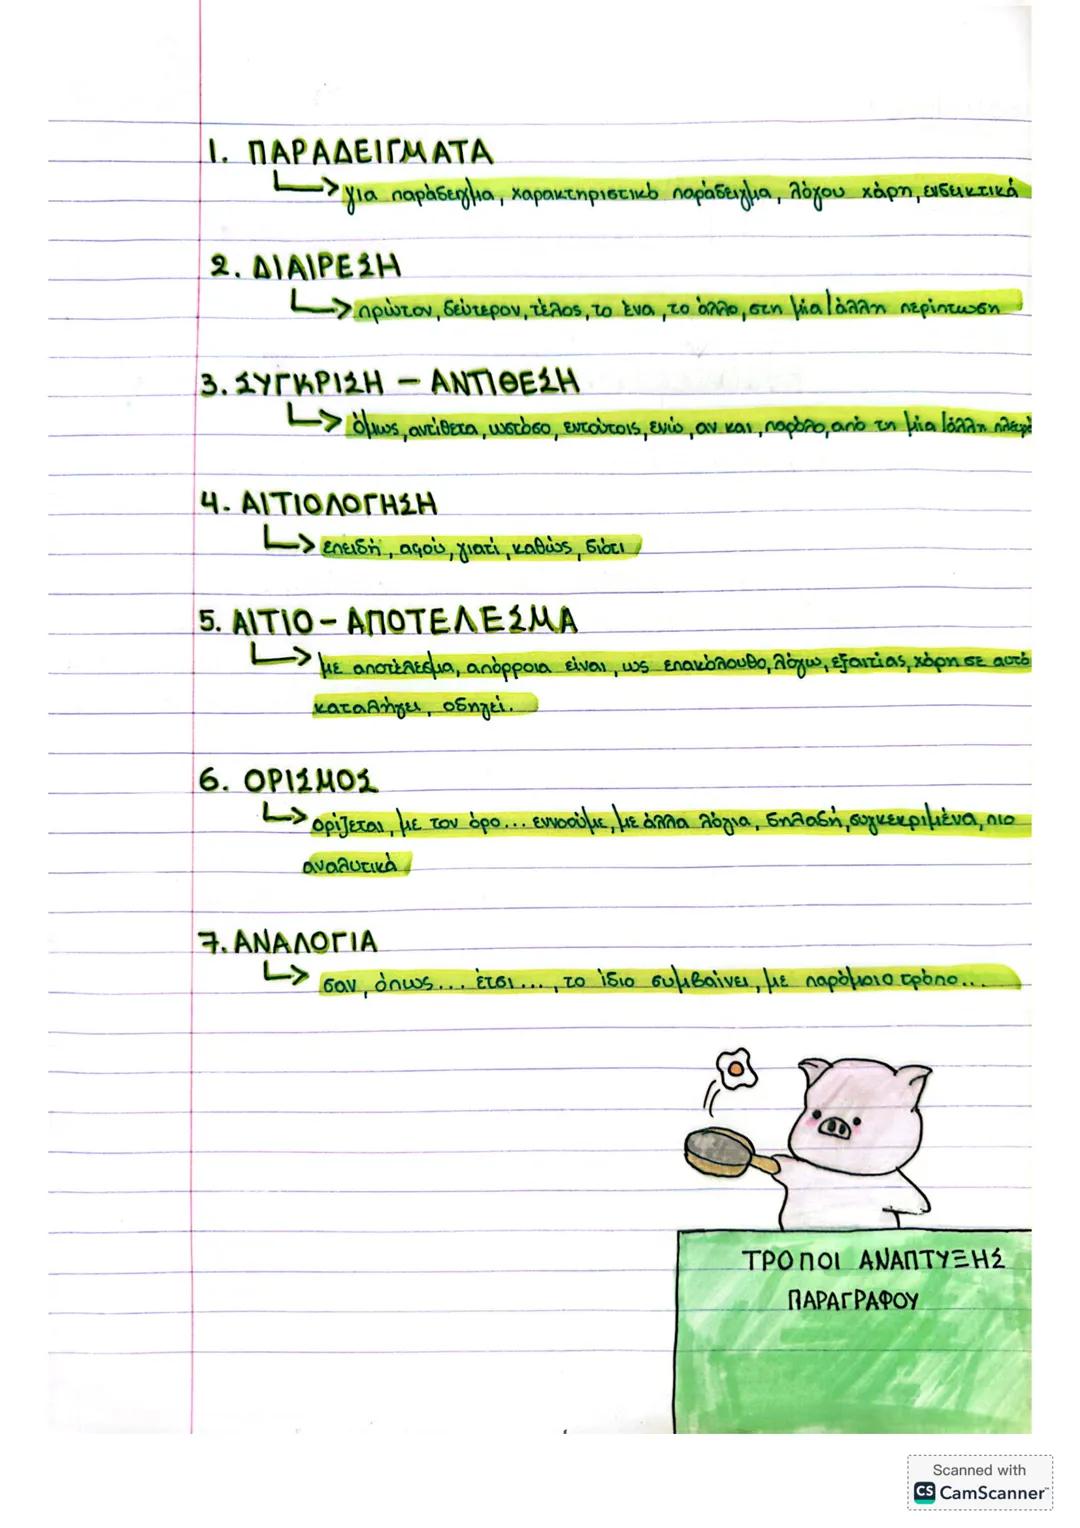 1. ΠΑΡΑΔΕΙΓΜΑΤΑ
για παράδειγμα, χαρακτηριστικό παράδειγμα, λόγου χάρη, ενδεικτικά
2. ΔΙΑΙΡΕΣΗ
πρώτον, δεύτερον, τέλος, το ένα, το άλλο, στη μία/άλλη περίπτωση
3. ΣΥΓΚΡΙΣΗ - ΑΝΤΙΘΕΣΗ
όμως, αντίθετα, ωστόσο, εντούτοις, ενώ, αν και, παρόλο, από τη μία/άλλη πλευρά
4. ΑΙΤΙΟΛΟΓΗΣΗ
επειδή, αφού, γιατί, καθώς, διότι
5. ΑΙΤΙΟ - ΑΠΟΤΕΛΕΣΜΑ
με αποτέλεσμα, απόρροια είναι, ως επακόλουθο, λόγω, εξαιτίας, χάρη σε αυτό
καταλήγει, οδηγεί.
6. ΟΡΙΣΜΟΣ
ορίζεται, με τον όρο... εννοούμε, με άλλα λόγια, δηλαδή, συγκεκριμένα, πιο
αναλυτικά
7. ΑΝΑΛΟΓΙΑ
σαν, όπως... έτσι..., το ίδιο συμβαίνει, με παρόμοιο τρόπο...
ΤΡΟΠΟΙ ΑΝΑΠΤΥΞΗΣ
ΠΑΡΑΓΡΑΦΟΥ
Scanned with
CS CamScanner